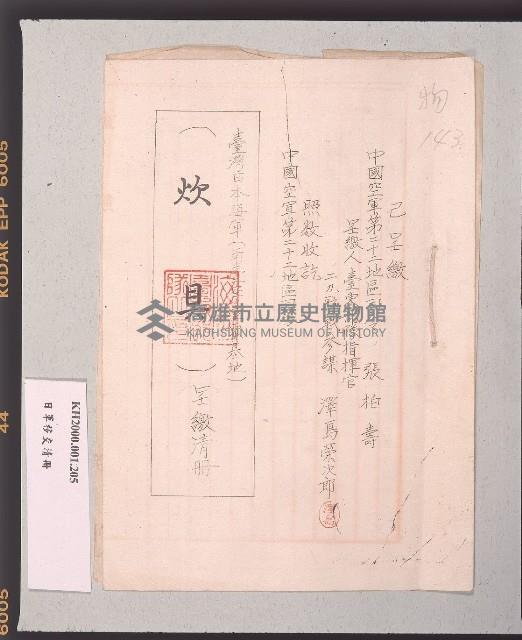 物
143
已呈繳
中國空軍第二十二地區 張柏壽
呈繳人臺 指揮官
參謀 澤島榮次郎
照数收訖
中國空軍第二十二地區
臺灣日本海軍 基地)
(炊具)呈繳清冊
高雄市立歷史博物館
KAOHSIUNG MUSEUM OF HISTORY
KH2000.001.205
日軍移交清冊
KODAK EPP 6005
44
6005